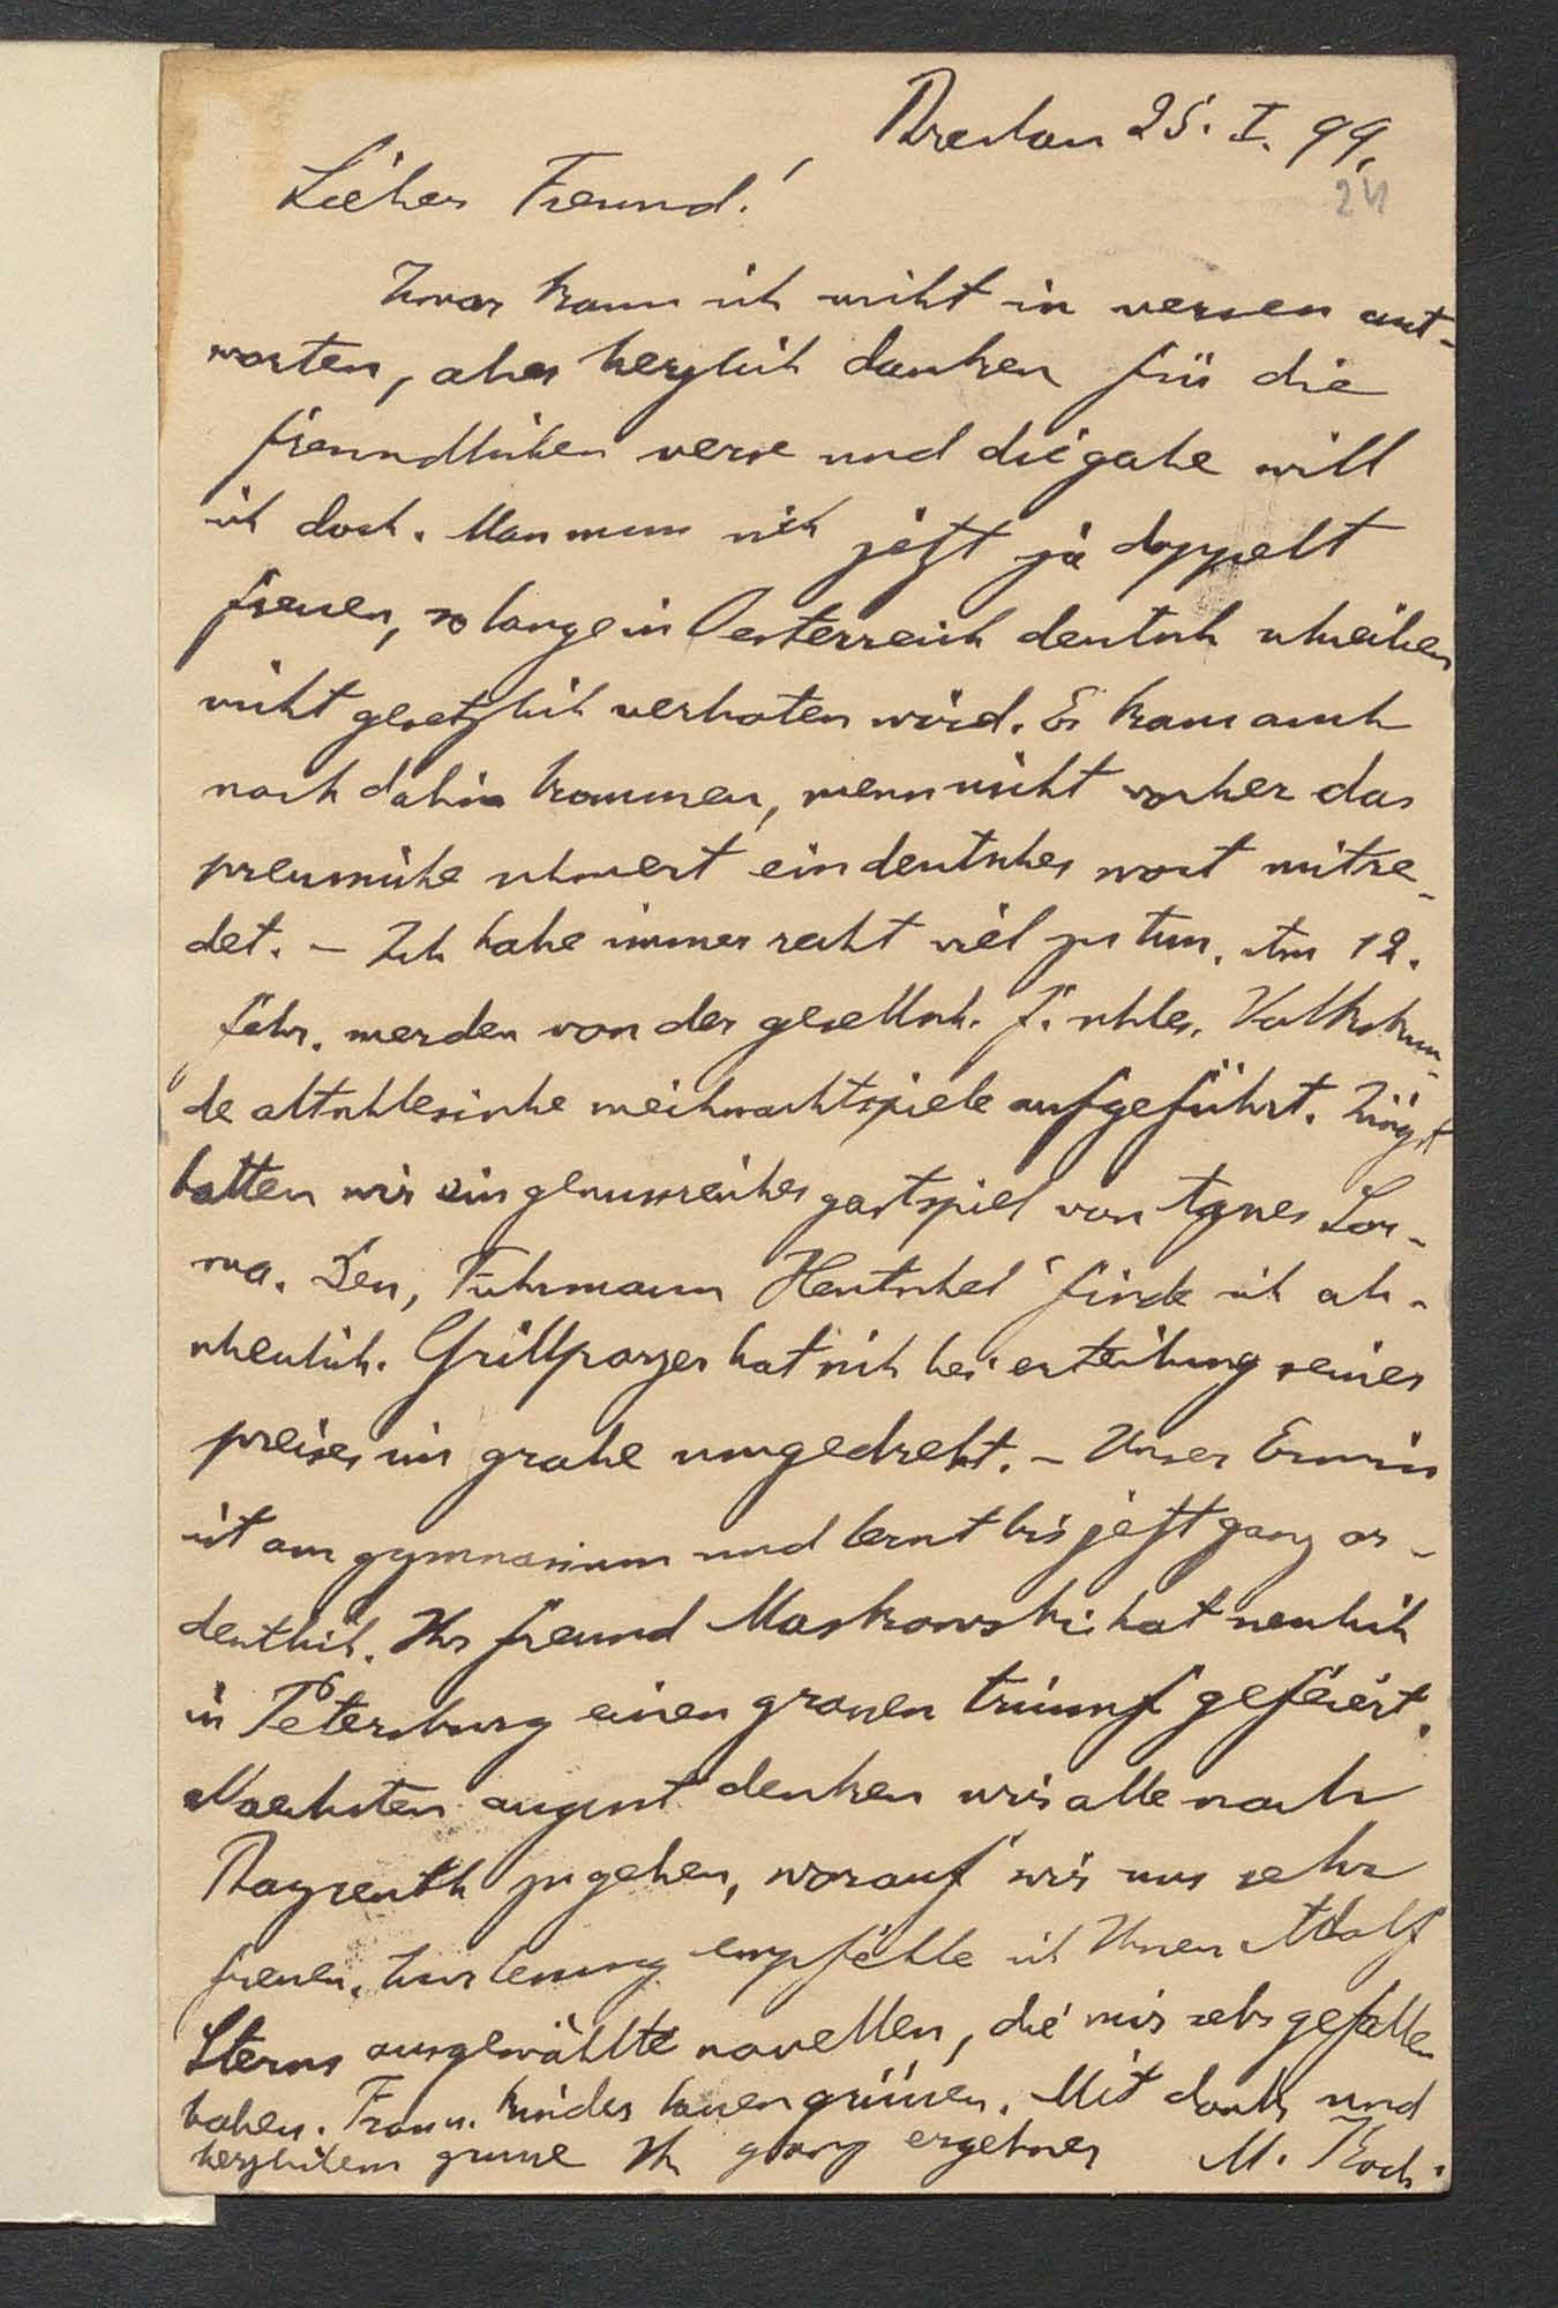 Breslau 25. I. 99.
24
Lieber Freund!
Zwar kann ich nicht in versen ant-
worten, aber herzlich danken für die
freundlichen verse und die gabe will
ich doch. Man muss sich jetzt ja doppelt
freuen, so lange in Oesterreich deutsch schreiben
nicht gesetzlich verboten wird. Es kann auch
noch dahin kommen, wenn nicht vorher das
preussische schwert ein deutsches wort mitre-
det. – Ich habe immer recht viel zu tun. Am 12.
febr. werden von der gesellsch. f. schles. Volkskun-
de altschlesische weihnachtspiele aufgeführt. Jüngst
hatten wir ein genussreiches gastspiel von Agnes Sor-
ma. Den „Fuhrmann Hentschel“ finde ich ab-
scheulich. Grillparzer hat sich bei erteilung seines
preises im grabe umgedreht. – Unser Erwin
ist am gymnasium und lernt bis jetzt ganz or-
dentlich. Ihr freund Maszkowski hat neulich
in Petersburg einen grossen triumf gefeiert.
Naechsten august denken wir alle nach
Bayreuth zu gehen, worauf wir uns sehr
freuen. Zur lesung empfehle ich Ihnen Adolf
Sterns ausgewählte novellen, die mir sehr gefallen
haben. Frau u. kinder lassen grüssen. Mit dank und
herzlichem grusse Ihr ganz ergebner M. Koch.